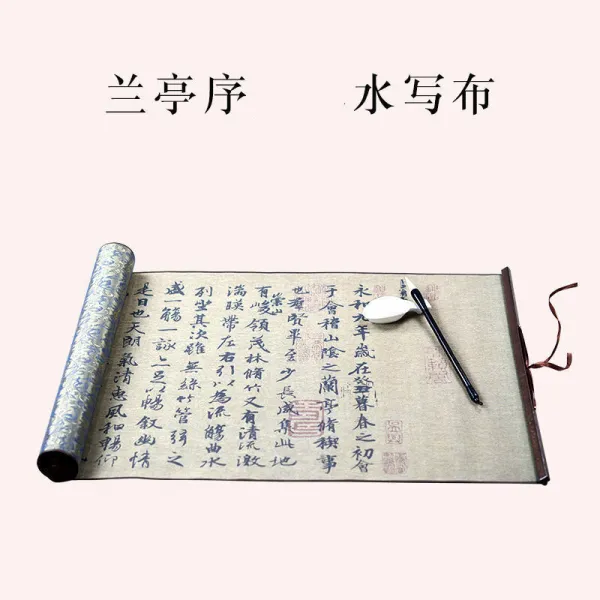 兰亭序 水写布
永和九年歲在癸丑暮春之初會
于會稽山陰之蘭亭脩稧事
也羣賢畢至少長咸集此地
有崇山峻領茂林脩竹又有清流激
湍暎帶左右引以為流觴曲水
列坐其次雖無絲竹管弦之
盛一觴一詠亦足以暢叙幽情
是日也天朗氣清惠風和暢仰